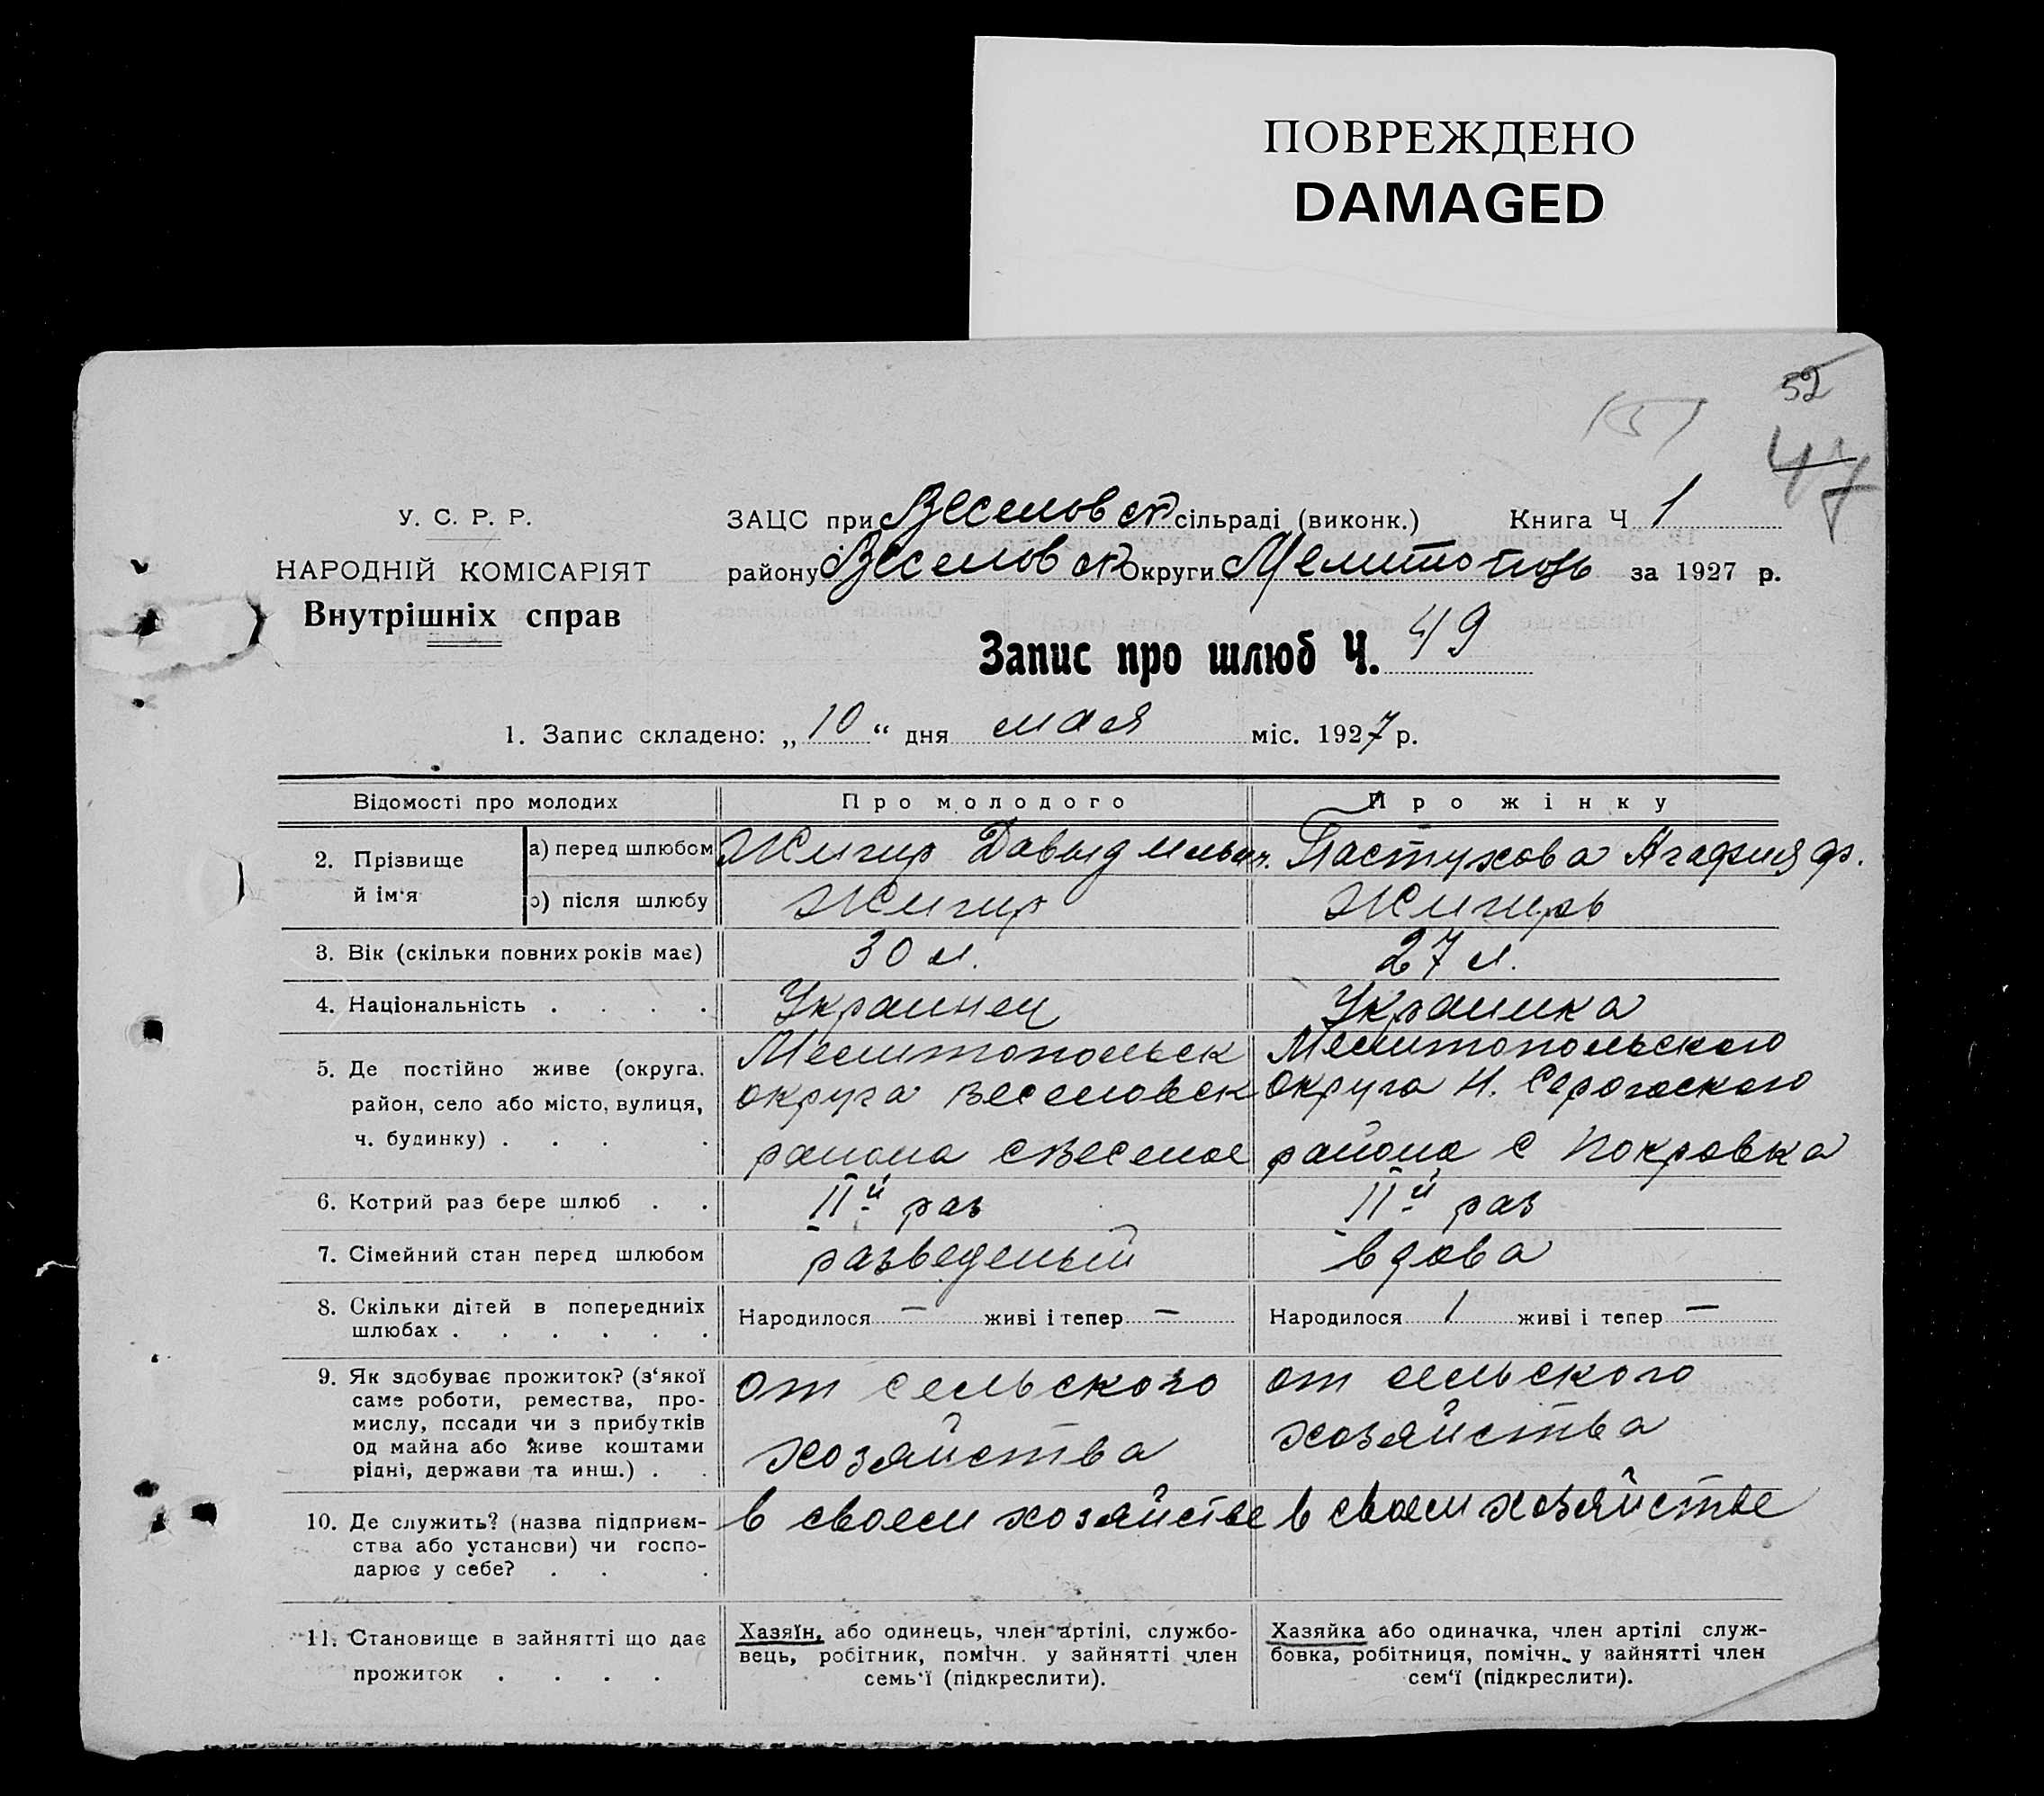 ПОВРЕЖДЕНО
DAMAGED
52
47
У. С. Р. Р.
НАРОДНІЙ КОМІСАРІЯТ
Внутрішніх справ
ЗАЦС при Веселовск сільраді (виконк.) Книга Ч 1
району Веселовск Округи Мелитополь за 1927 р.
Запис про шлюб Ч. 49
1. Запис складено: „ 10 “ дня мая міс. 1927 р.
Відомості про молодих Про молодого Про жінку
2. Прізвище й ім'я
а) перед шлюбом Жигир Давыд Ильич. Пастухова Агафия Ф.
б) після шлюбу Жигир Жигирь
3. Вік (скільки повних років має) 30 л. 27 л.
4. Національність . . . . Украинец Украинка
5. Де постійно живе (округа.
район, село або місто, вулиця,
ч. будинку) . . . .
Мелитопольск
округа Веселовск
района с Веселое
Мелитопольского
округа Н. Серогоского
района с Покровка
6. Котрий раз бере шлюб . . IIй раз IIй раз
7. Сімейний стан перед шлюбом разведеный вдова
8. Скільки дітей в попередниіх
шлюбах . . . . . .
Народилося — живі і тепер — Народилося 1 живі і тепер —
9. Як здобуває прожиток? (з‘якої
саме роботи, ремества, про-
мислу, посади чи з прибутків
од майна або живе коштами
рідні, держави та инш.) . .
от сельского
хозяйства
от сельского
хозяйства
10. Де служить? (назва підприєм-
ства або установи) чи госпо-
дарює у себе? . . .
в своем хозяйстве в своем хозяйстве
11. Становище в зайнятті що дає
прожиток . . . .
Хазяїн, або одинець, член артілі, службо-
вець, робітник, помічн. у зайнятті член
семь‘ї (підкреслити).
Хазяйка або одиначка, член артілі служ-
бовка, робітниця, помічн. у зайнятті член
сем‘ї (підкреслити).